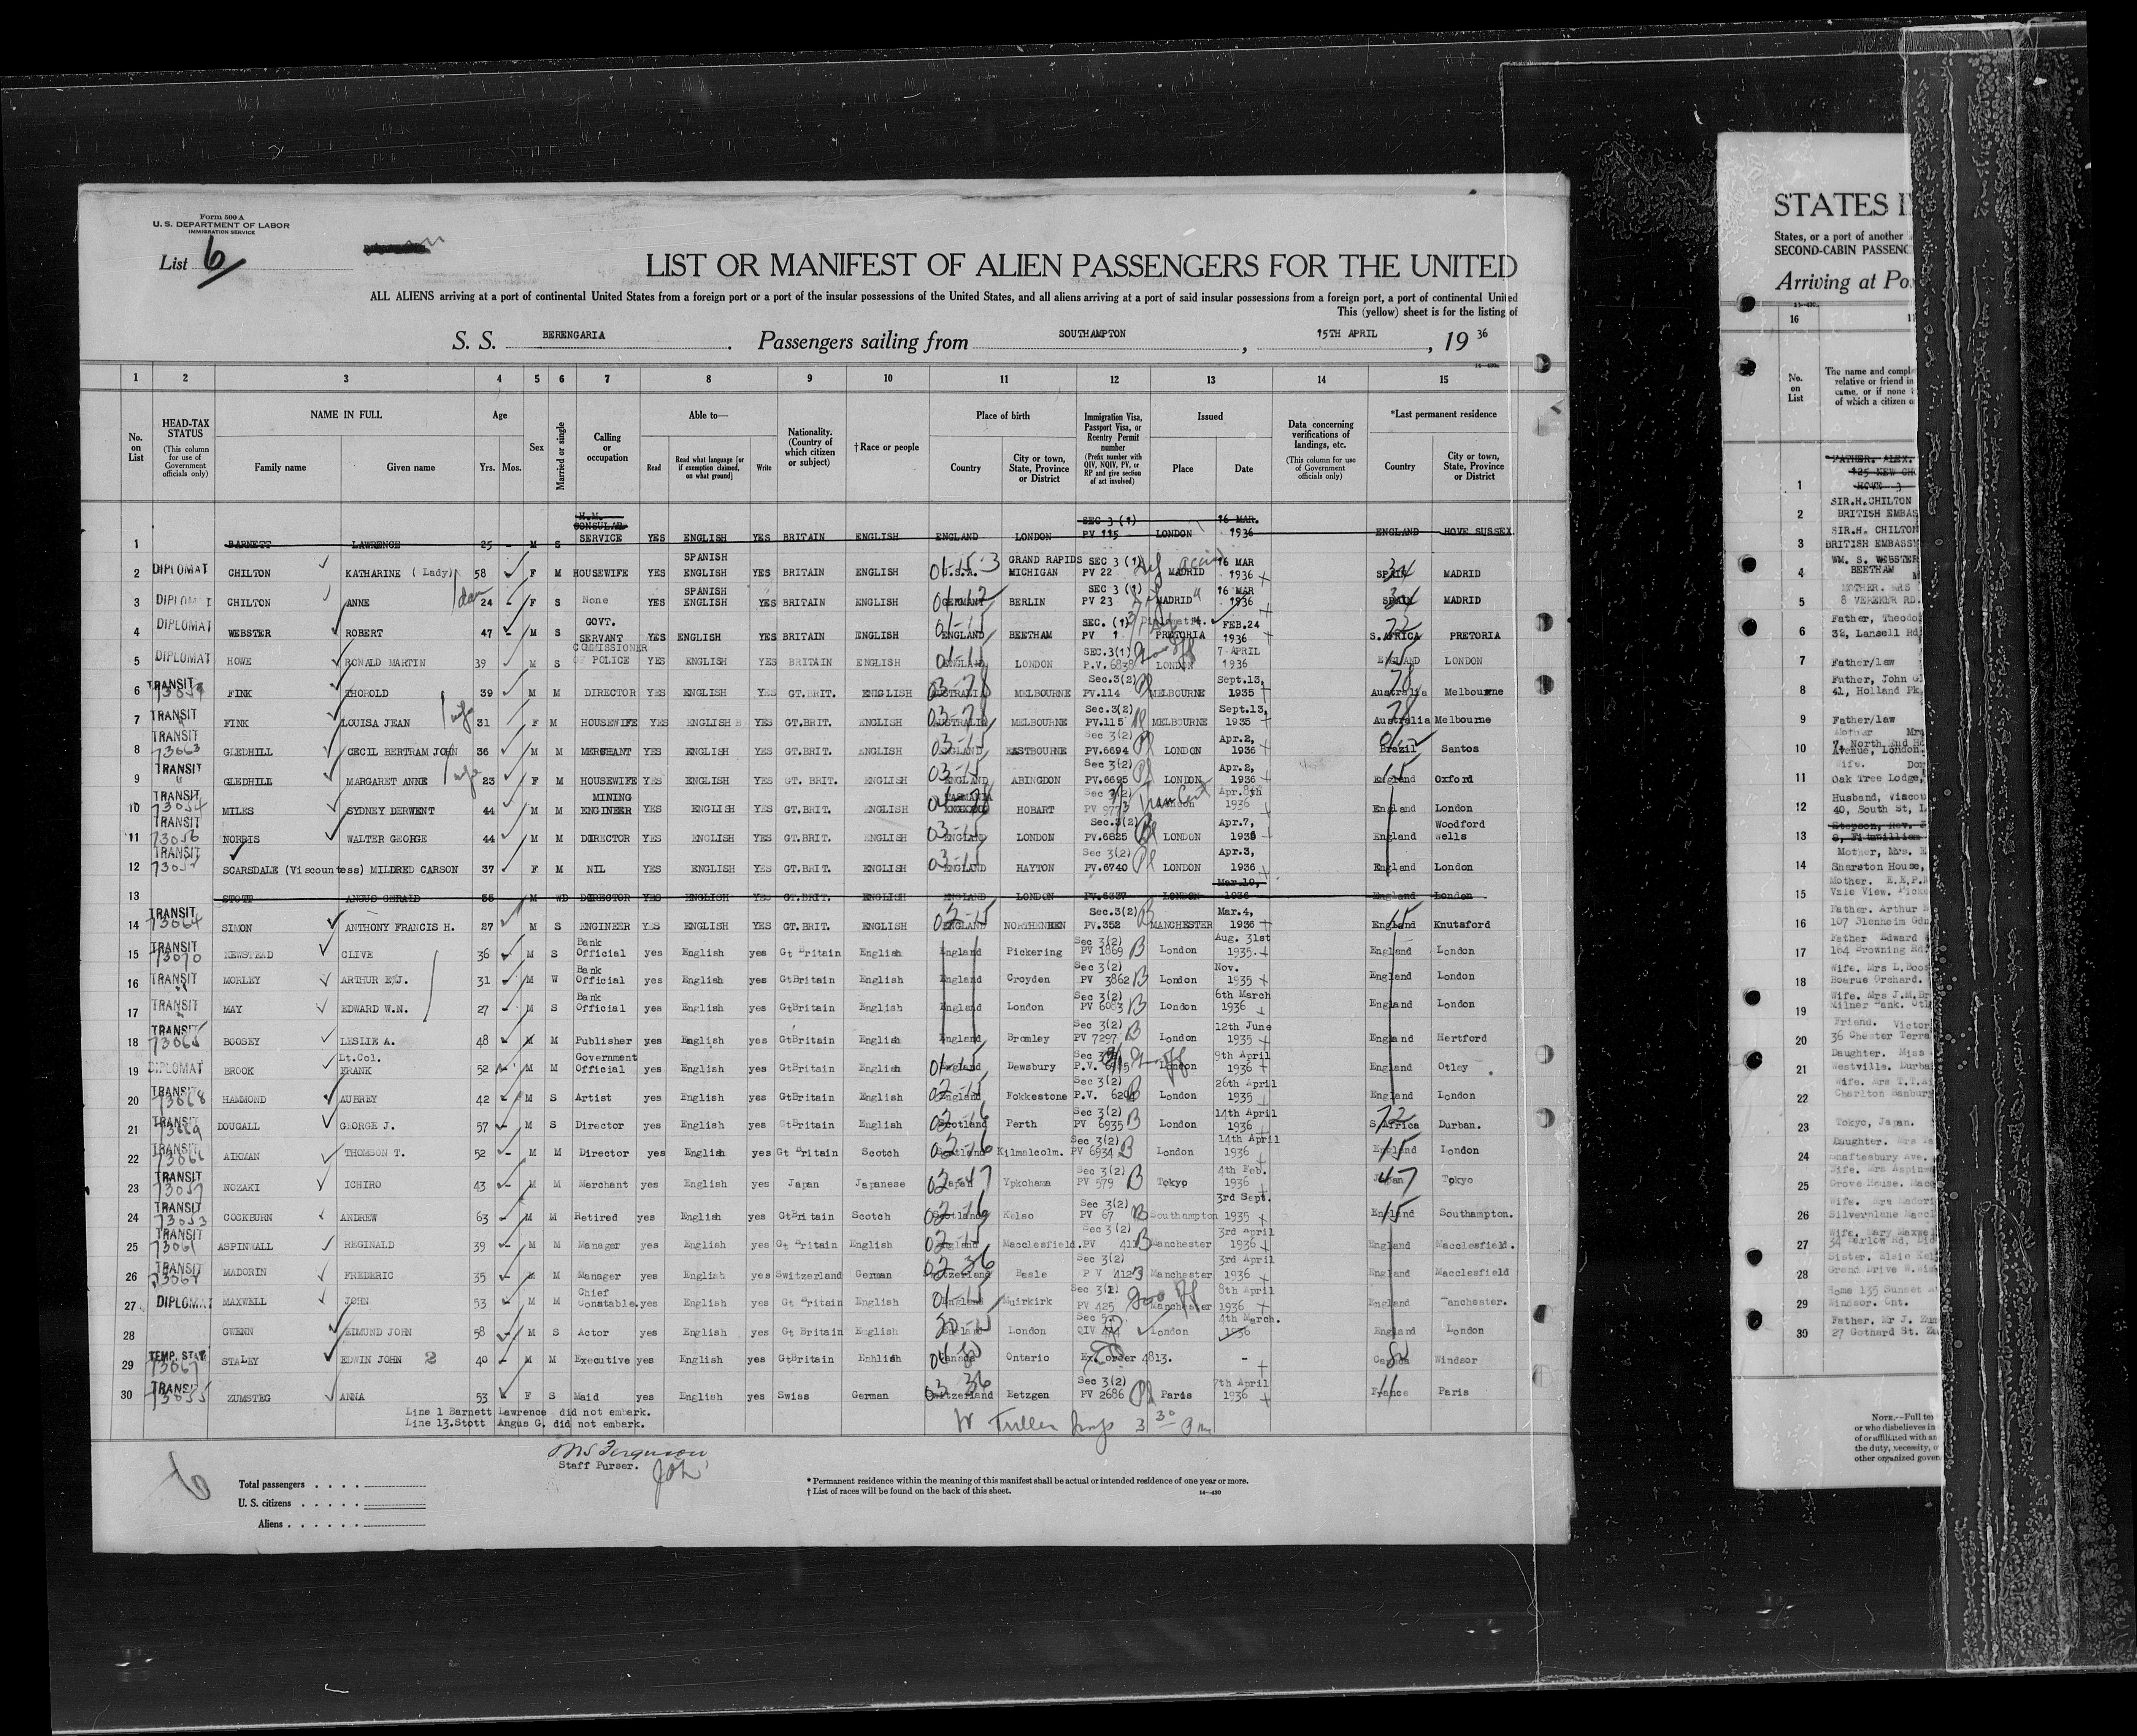 Form 500 A
U. S. DEPARTMENT OF LABOR
IMMIGRATION SERVICE
List 6
LIST OR MANIFEST OF ALIEN PASSENGERS FOR THE UNITED
ALL ALIENS arriving at a port of continental United States from a foreign port or a port of the insular possessions of the United States, and all aliens arriving at a port of said insular possessions from a foreign port, a port of continental United
This (yellow) sheet is for the listing of
S. S. BERENGARIA. Passengers sailing from SOUTHAMPTON, 15TH APRIL, 19 36
1 2 3 4 5 6 7 8 9 10 11 12 13 14 15
No. on List
HEAD-TAX STATUS (This column for use of Government officials only)
NAME IN FULL Family name Given name
Age Yrs. Mos.
Sex
Married or single
Calling or occupation
Able to— Read Read what language [or if exemption claimed, on what ground] Write
Nationality. (Country of which citizen or subject)
†Race or people
Place of birth Country City or town, State, Province or District
Immigration Visa, Passport Visa, or Reentry Permit number (Prefix number with QIV, NQIV, PV, or RP and give section of act involved)
Issued Place Date
Data concerning verifications of landings, etc. (This column for use of Government officials only)
*Last permanent residence Country City or town, State, Province or District
1 BARNETT LAWRENCE 25 - M S H.M. CONSULAR SERVICE YES ENGLISH YES BRITAIN ENGLISH ENGLAND LONDON SEC 3 (1) PV 115 LONDON 16 MAR. 1936 ENGLAND HOVE SUSSEX
2 DIPLOMAT CHILTON KATHARINE (Lady) 58 F M HOUSEWIFE YES SPANISH ENGLISH YES BRITAIN ENGLISH U.S.A. GRAND RAPIDS MICHIGAN SEC 3 (1) PV 22 MADRID 16 MAR 1936 SPAIN MADRID
3 CHILTON ANNE dau 24 - F S None YES SPANISH ENGLISH YES BRITAIN ENGLISH GERMANY BERLIN SEC 3 (1) PV 23 MADRID 16 MAR 1936 SPAIN MADRID
4 DIPLOMAT WEBSTER ROBERT 47 - M S GOVT. SERVANT YES ENGLISH YES BRITAIN ENGLISH ENGLAND BEETHAM SEC. (1) PV 1 PRETORIA FEB.24 1936 S.AFRICA PRETORIA
5 DIPLOMAT HOWE RONALD MARTIN 39 M S COMMISSIONER OF POLICE YES ENGLISH YES BRITAIN ENGLISH ENGLAND LONDON SEC.3(1) P.V. 6838 LONDON 7 APRIL 1936 ENGLAND LONDON
6 TRANSIT FINK THOROLD 39 M M DIRECTOR YES ENGLISH YES GT.BRIT. ENGLISH AUSTRALIA MELBOURNE Sec.3(2) PV.114 MELBOURNE Sept.13, 1935 Australia Melbourne
7 TRANSIT FINK LOUISA JEAN wife 31 F M HOUSEWIFE YES ENGLISH YES GT.BRIT. ENGLISH AUSTRALIA MELBOURNE Sec.3(2) PV.115 MELBOURNE Sept.13, 1935 Australia Melbourne
8 TRANSIT 73063 GLEDHILL CECIL BERTRAM JOHN 36 M M MERCHANT YES ENGLISH YES GT.BRIT. ENGLISH ENGLAND EASTBOURNE Sec 3(2) PV.6694 LONDON Apr.2, 1936 Brazil Santos
9 TRANSIT GLEDHILL MARGARET ANNE wife 23 F M HOUSEWIFE YES ENGLISH YES GT. BRIT. ENGLISH ENGLAND ABINGDON Sec 3(2) PV.6695 LONDON Apr.2, 1936 England Oxford
10 TRANSIT 73054 MILES SYDNEY DERWENT 44 M M MINING ENGINEER YES ENGLISH YES GT.BRIT. ENGLISH TASMANIA HOBART Sec 3(2) PV 9773 London Apr.8th 1936 England London
11 TRANSIT 73056 NORRIS WALTER GEORGE 44 M M DIRECTOR YES ENGLISH YES GT.BRIT. ENGLISH ENGLAND LONDON Sec.3(2) PV.6825 LONDON Apr.7, 1936 England Woodford Wells
12 TRANSIT SCARSDALE (Viscountess) MILDRED CARSON 37 F M NIL YES ENGLISH YES GT.BRIT. ENGLISH ENGLAND HAYTON Sec 3(2) PV.6740 LONDON Apr.3, 1936 England London
13 STOTT ANGUS GERALD 55 M WD DIRECTOR YES ENGLISH YES GT.BRIT. ENGLISH ENGLAND LONDON PV.6337 LONDON Mar.10, 1936 England London
14 TRANSIT 73064 SIMON ANTHONY FRANCIS H. 27 M S ENGINEER YES ENGLISH YES GT.BRIT. ENGLISH ENGLAND NORTHENHEN Sec.3(2) PV.352 MANCHESTER Mar.4, 1936 England Knutsford
15 TRANSIT 73070 NEWSTEAD CLIVE 36 M S Bank Official yes English yes Gt Britain English England Pickering Sec 3(2) PV 1869 London Aug. 31st 1935. England London
16 TRANSIT MORLEY ARTHUR E.J. 31 M W Bank Official yes English yes GtBritain English England Croydon Sec 3(2) PV 3862 London Nov. 1935 England London
17 TRANSIT MAY EDWARD W.N. 27 M S Bank Official yes English yes GtBritain English England London Sec 3(2) PV 6083 London 6th March 1936 England London
18 TRANSIT 73065 BOOSEY LESLIE A. 48 M M Publisher yes English yes GtBritain English England Bromley Sec 3(2) PV 7297 London 12th June 1935 England Hertford
19 DIPLOMAT BROOK Lt.Col. FRANK 52 M M Government Official yes English yes GtBritain English England Dewsbury P.V. London 9th April 1936 England Otley
20 TRANSIT 73068 HAMMOND AUBREY 42 M S Artist yes English yes GtBritain English England Fokkestone Sec 3(2) P.V. London 26th April 1935 England London
21 TRANSIT DOUGALL GEORGE J. 57 M S Director yes English yes GtBritain English Scotland Perth Sec 3(2) PV 6935 London 14th April 1936 S Africa Durban.
22 TRANSIT AIKMAN THOMSON T. 52 M M Director yes English yes Gt Britain Scotch Scotland Kilmalcolm. Sec 3(2) PV 6934 London 14th April 1936 England London
23 TRANSIT 73057 NOZAKI ICHIRO 43 M M Merchant yes English yes Japan Japanese Japan Ypkohama Sec 3(2) PV 579 Tokyo 4th Feb. 1936 Japan Tokyo
24 TRANSIT 73053 COCKBURN ANDREW 63 M M Retired yes English yes GtBritain Scotch Scotland Kelso Sec 3(2) PV 67 Southampton 3rd Sept. 1935 England Southampton.
25 TRANSIT 73061 ASPINWALL REGINALD 39 M M Manager yes English yes Gt Britain English England Macclesfield. Sec 3(2) PV Manchester 3rd April 1936 England Macclesfield.
26 TRANSIT MADORIN FREDERIC 35 M M Manager yes English yes Switzerland German Switzerland Basle Sec 3(2) P V 412 Manchester 3rd April 1936 England Macclesfield
27 DIPLOMAT MAXWELL JOHN 53 M M Chief Constable. yes English yes Gt Britain English England Muirkirk PV 425 Manchester 8th April 1936 England Manchester.
28 GWENN EDMUND JOHN 58 M S Actor yes English yes Gt Britain English England London QIV London 4th March. 1936 England London
29 TEMP. STAY 73067 STALEY EDWIN JOHN 2 40 M M Executive yes English yes GtBritain Enhlish Canada Ontario Ex. order 4813. - Canada Windsor
30 TRANSIT 73055 ZUMSTEG ANNA 53 F S Maid yes English yes Swiss German Switzerland Eetzgen Sec 3(2) PV 2686 Paris 7th April 1936 France Paris
Line 1 Barnett Lawrence did not embark.
Line 13.Stott Angus G. did not embark.
Staff Purser.
6
Total passengers
U. S. citizens
Aliens
* Permanent residence within the meaning of this manifest shall be actual or intended residence of one year or more.
† List of races will be found on the back of this sheet.
14—430
STATES
States, or a port of another
SECOND-CABIN
Arriving at
16
No. on List
The name and
relative or friend in
came, or if none
of which a citizen
1 FATHER. ALEX.
125 NEW
HOVE 3
2 SIR.H.CHILTON
BRITISH
3 SIR.H. CHILTON
BRITISH EMBASSY
4 WM. S. WEBSTER
BEETHAM
5 MOTHER. MRS
8 VEREKER RD.
6 Father,
32, Lansell Rd
7 Father/law
8 Father, John
41, Holland
9 Father/law
10 Mother Mrs
London.
11 Wife.
Oak Tree Lodge,
12 Husband,
40, South St,
13 Stepson, Rev.
8, Fitzwilliam
14 Mother, Mrs.
Sharston House,
15 Mother.
Vale View.
16 Father. Arthur
107 Blenheim Gdn
17 Father Edward
104 Browning Rd.
18 Wife. Mrs L.
Orchard.
19 Wife. Mrs J.M.
Milner Bank.
20 Friend.
36 Chester
21 Daughter. Miss
Westville.
22 Wife. Mrs T.T.
Charlton
23 Tokyo, Japan.
24 Daughter. Mrs
Shaftesbury Ave.
25 Wife. Mrs
Grove House.
26 Wife. Mrs
27 Wife. Mary
28 Sister. Elsie
Grand Drive
29 Home 135 Sunset
Windsor. Ont.
30 Father. Mr J.
27 Gothard St.
NOTE.—Full
or who disbelieves in
of or affiliated with
the duty, necessity,
other organized